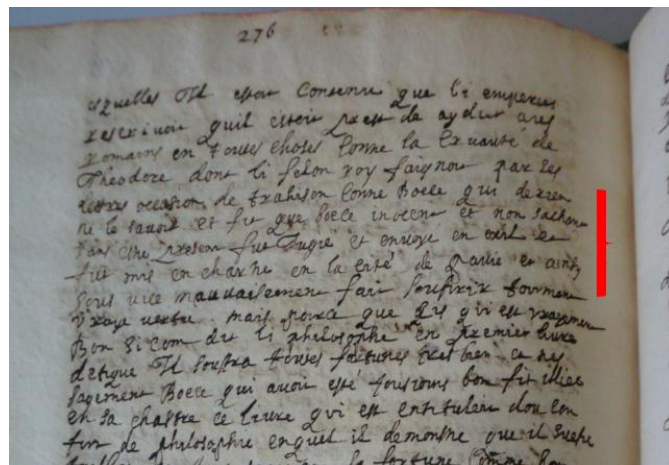 276
esquelles Il estoit Contenu que li empereur
rescrivoit quil estoit prest de aydier aves
romains en toutes choses Contre la Cruauté de
Theodore dont li felon roy faignoit par ces
lettres occasion de trahison Contre Boece qui de rien
ne le savoit et fit que boece inocent et non sachant
sans estre present fut Jugié et envoyé en exil et
fut mis en chartre en la cité de Pavie et ainsy
sous vice mauvaisement fait souffrir tourment
vraye vertu. mais pource que cis qui est vrayement
Bon si com dit li philosophe en premier livre
detique Il soustra toutes fortunes tres bien ca nes
sagement Boece qui avoit esté tousjours bon fit illiec
en sa chartre ce livre qui est entitulein dou con
fim de philosophie enquel il demonstre que il
la fortune Comme